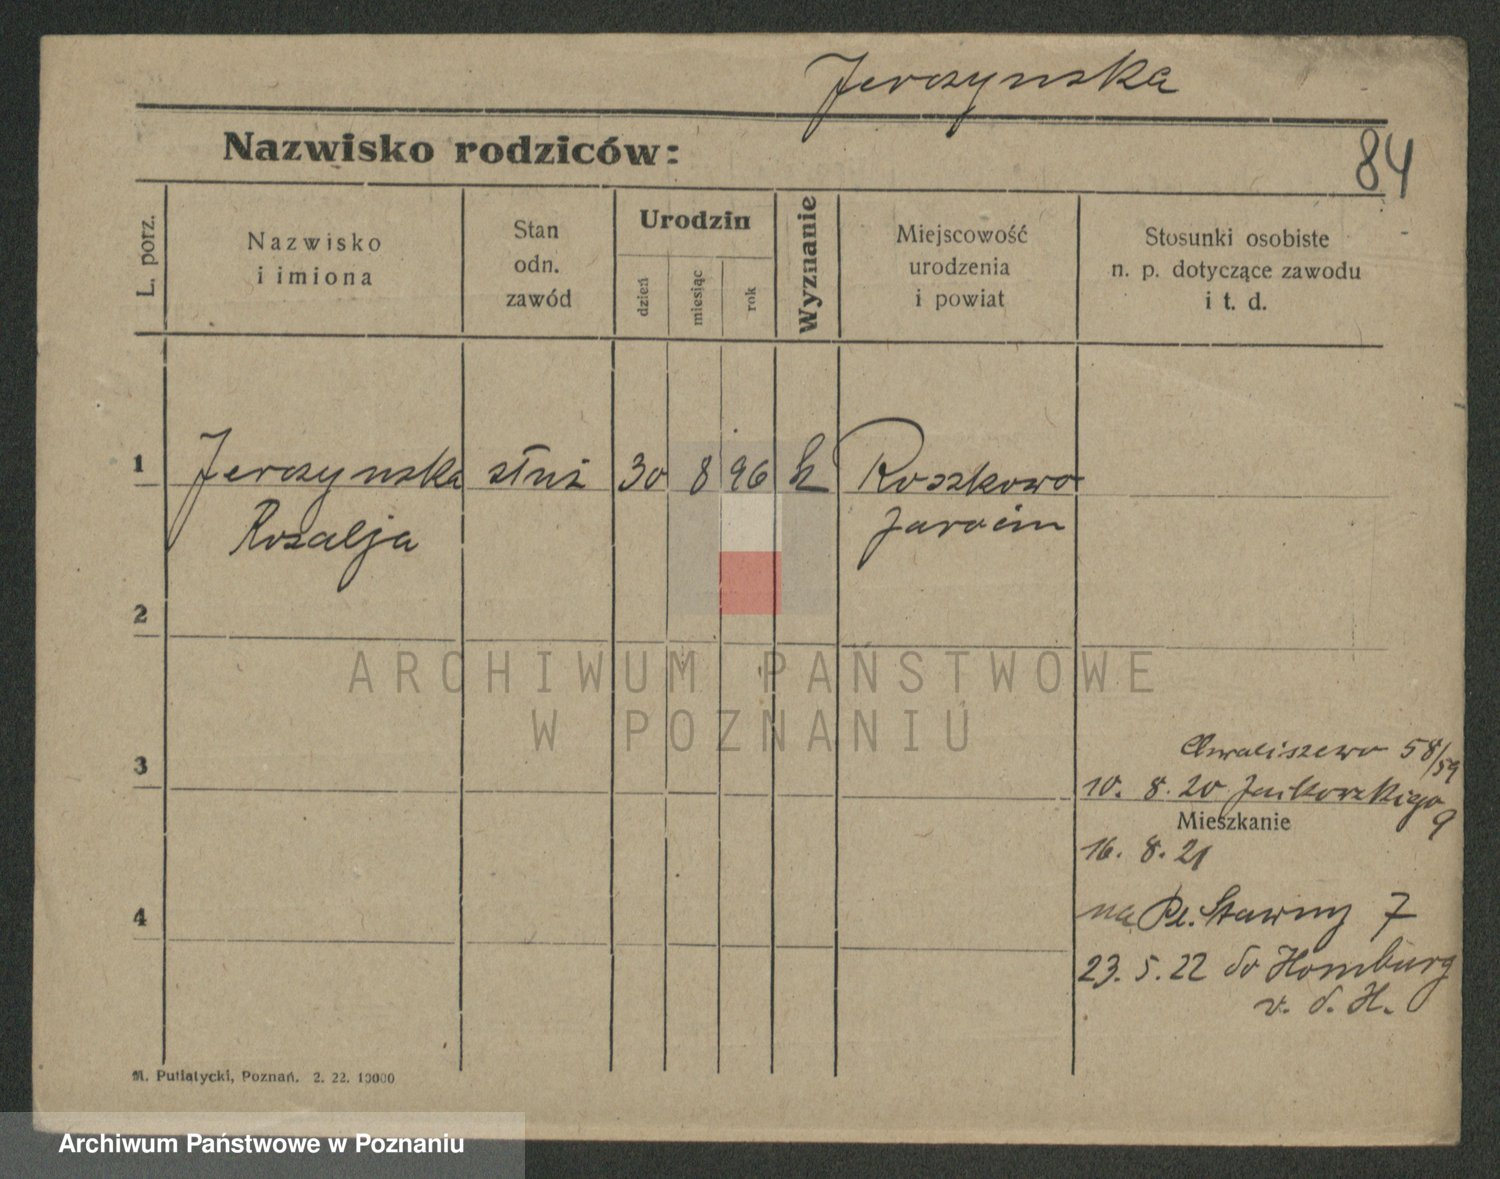 Jerczynska
Nazwisko rodziców:
84
L. porz.
Nazwisko
i imiona
Stan
odn.
zawód
Urodzin
dzień
miesiąc
rok
Wyznanie
Miejscowość
urodzenia
i powiat
Stosunki osobiste
n. p. dotyczące zawodu
i t. d.
1 Jerczynska służ 30 8 96 k Roszkowo
Rozalja Jarocin
2
3
4
Chwaliszewo 58/59
10. 8. 20
9
Mieszkanie
16. 8. 21
na Pl. Stawny 7
23. 5. 22 do Homburg
v. d. H.
M. Putiatycki, Poznań. 2. 22. 10000
ARCHIWUM PAŃSTWOWE
W POZNANIU
Archiwum Państwowe w Poznaniu